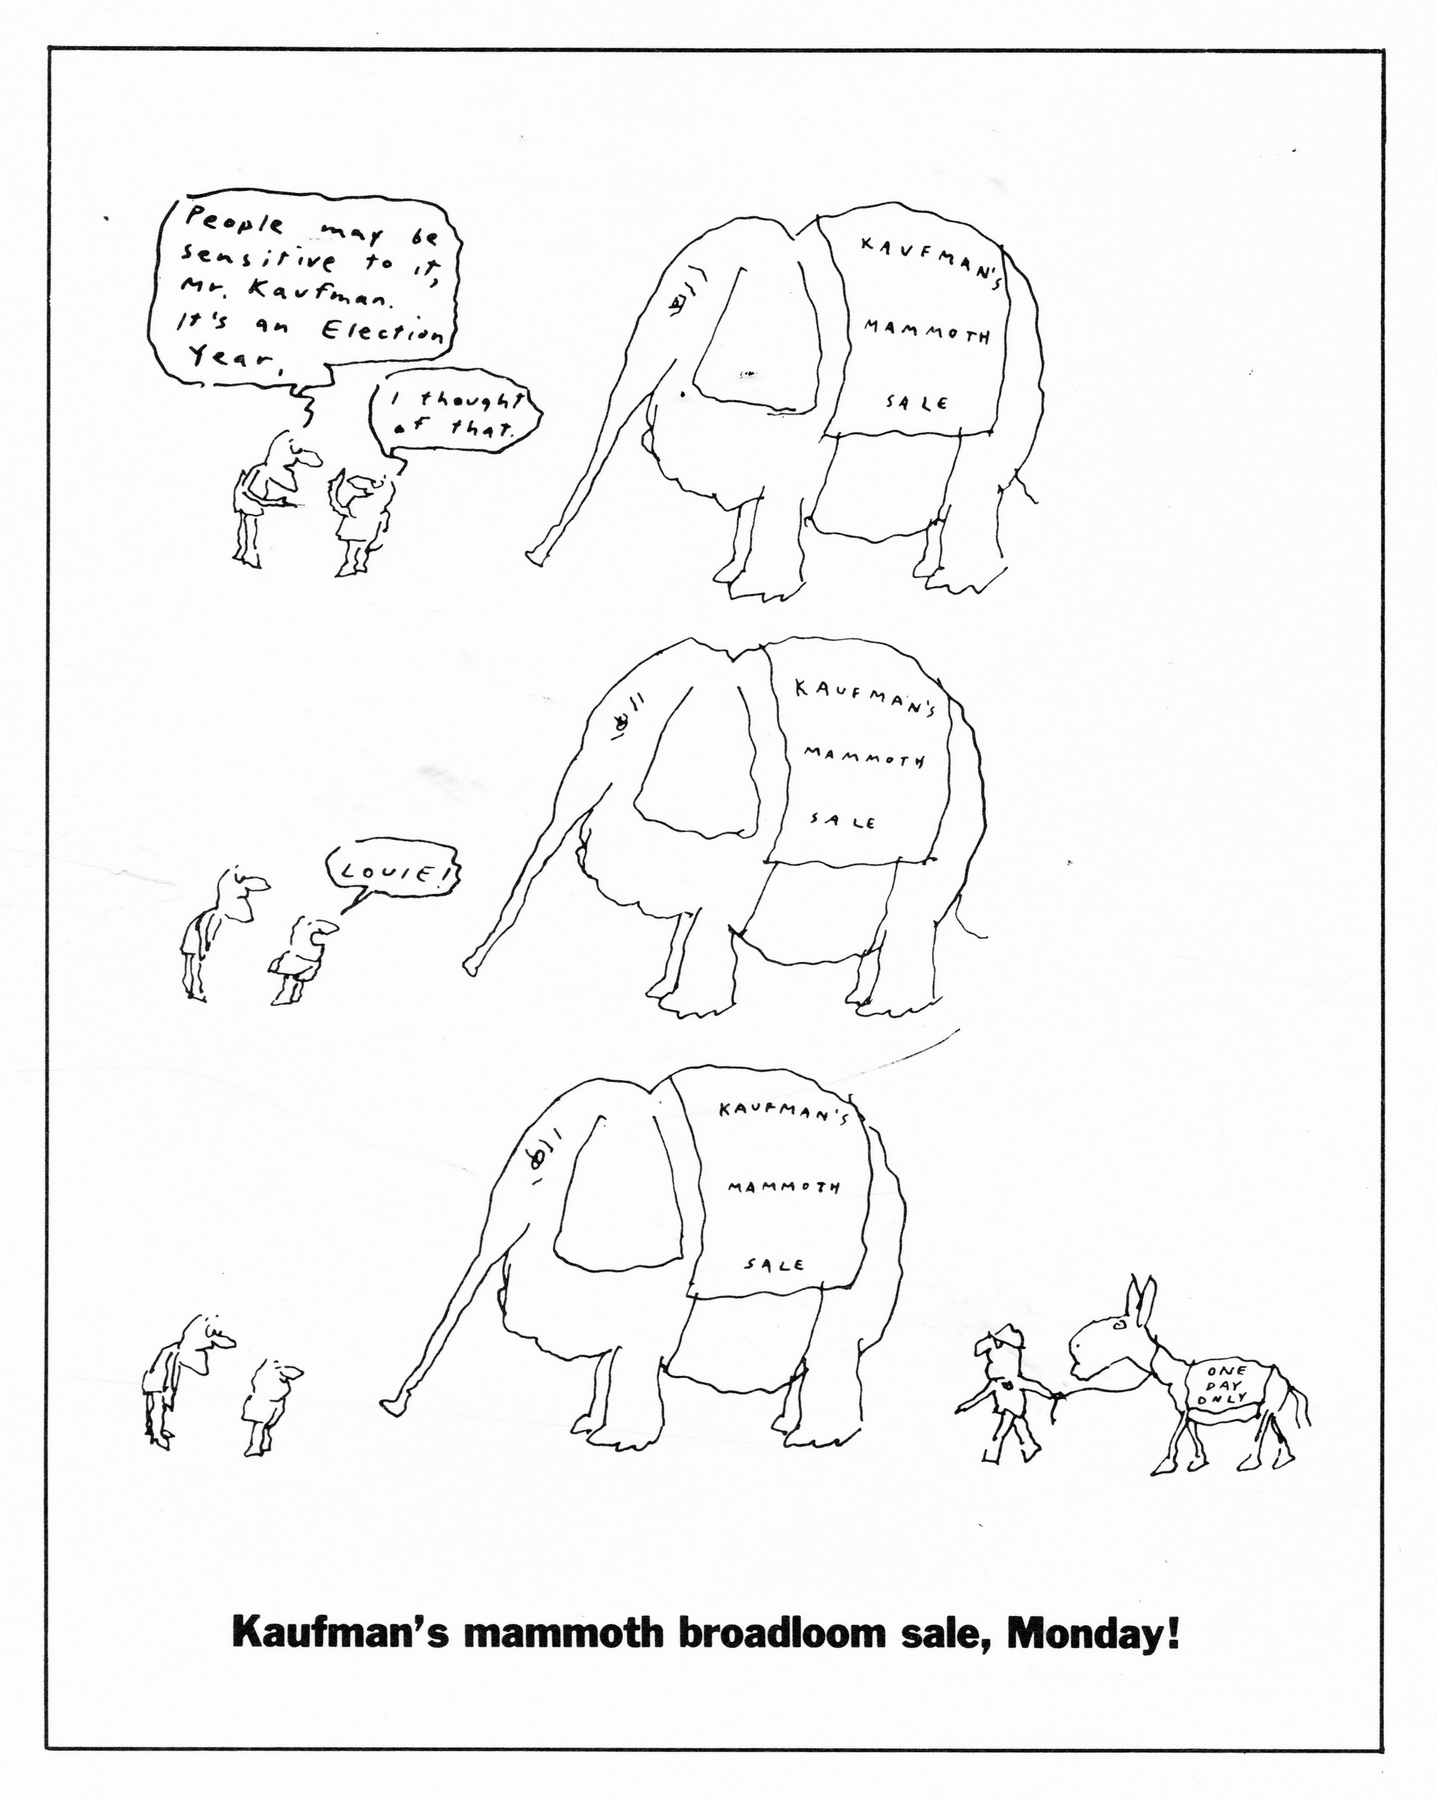 People may be
sensitive to it,
Mr. Kaufman.
It's an Election
Year.
I thought
of that.
KAUFMAN'S
MAMMOTH
SALE
LOUIE!
KAUFMAN'S
MAMMOTH
SALE
KAUFMAN'S
MAMMOTH
SALE
ONE
DAY
ONLY
Kaufman's mammoth broadloom sale, Monday!